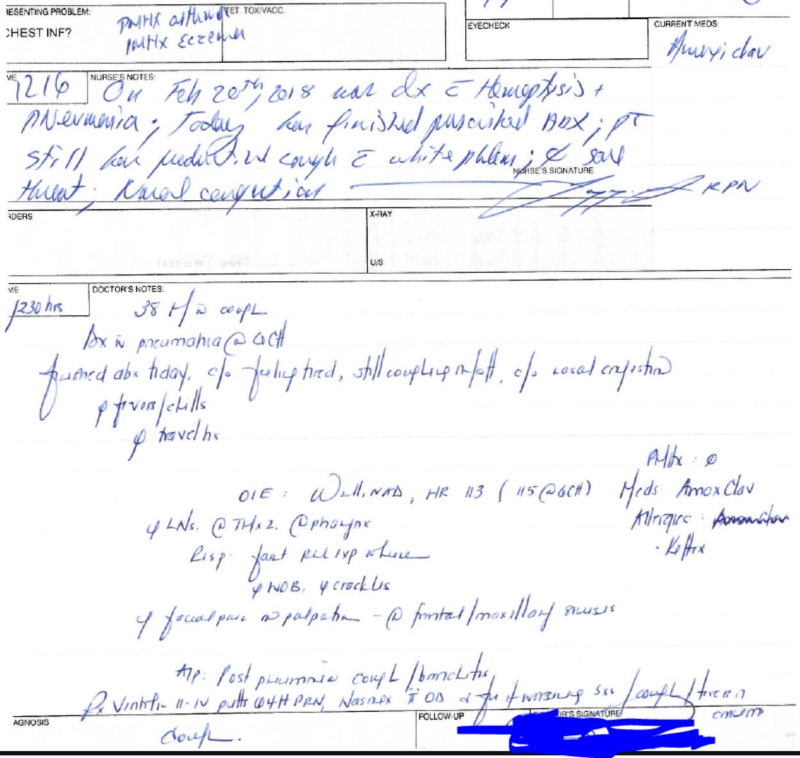 RESENTING PROBLEM:
TET. TOX/VACC.
CHEST INF?
PMHX asthma
PMHx Eczema
EYECHECK
CURRENT MEDS:
Amoxiclav
1216
NURSE'S NOTES:
On Feb 20th, 2018 was dx c̄ Hemoptysis +
PNeumonia; Today has finished ABX; pT
still has cough c̄ white phlem; ∅ sore
NURSE'S SIGNATURE
throat; Nasal congestion
RPN
RDERS
X-RAY
U/S
DOCTOR'S NOTES:
1230 hrs
38 M c̄ cough
Dx c̄ pneumonia @
finished abx today, c/o feeling tired, still coughing, c/o nasal congestion
∅ fevers/chills
∅ travel hx
PMHx: ∅
O/E: Well, NAD, HR 113 (115 @ GCH)
Meds: Amox Clav
∅ LNs. Ⓝ TMx2. Ⓝ pharynx
Allergies:
Resp: faint exp wheeze
- Keflex
∅ WOB. ∅ crackles
∅ facial pain on palpation - Ⓝ frontal/maxillary sinuses
A/P: Post pneumonia cough/bronchitis
Rx Ventolin II-IV puffs Q4H PRN, Nasonex II OD worsening sxs/cough/fever
AGNOSIS
Cough.
FOLLOW-UP
OR'S SIGNATURE